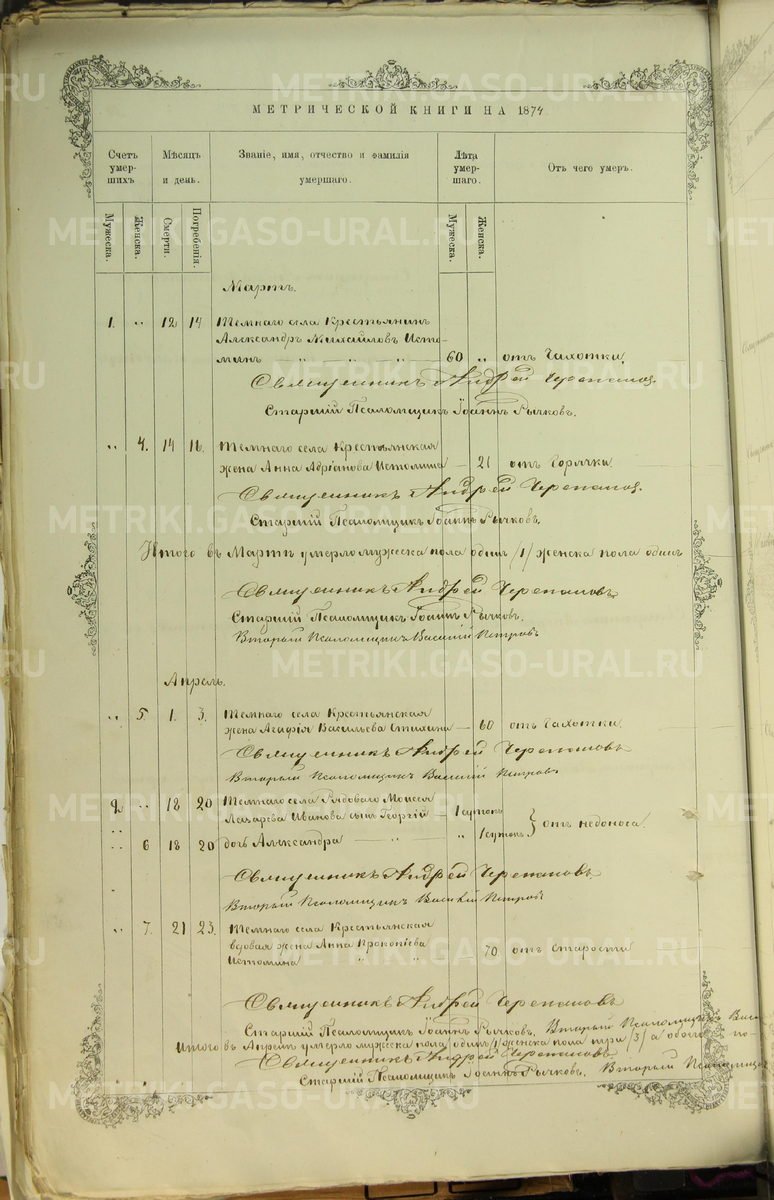 METRIKI.GASO-URAL.RU
МЕТРИЧЕСКОЙ КНИГИ НА 1874
Счетъ умер- шихъ
Мѣсяцъ и день.
Званіе, имя, отчество и фамилія умершаго.
Лѣта умер- шаго.
Отъ чего умеръ.
Мужеска.
Женска.
Смерти.
Погребенія.
Мужеска.
Женска.
Мартъ.
1. „ 12 14 Темнаго села Крестьянинъ
Александръ Михайловъ Исто-
минъ — „ — „ — „ — 60 „ отъ Чахотки.
Священникъ Андрей Черепановъ.
Старшій Псаломщикъ Іоаннъ Рычковъ.
„ 4. 14 16. Темнаго села Крестьянская
жена Анна Адріанова Истомина — 21 отъ Горячки
Священникъ Андрей Черепановъ.
Старшій Псаломщикъ Іоаннъ Рычковъ.
Итого въ Мартѣ умерло мужеска пола одинъ /1/ женска пола одинъ
Священникъ Андрей Черепановъ
Старшій Псаломщикъ Іоаннъ Рычковъ.
Вторый Псаломщикъ Василій Петровъ
Апрель.
„ 5 1. 3. Темнаго села Крестьянская
жена Агафія Васильева Стихина — 60 отъ Чахотки.
Священникъ Андрей Черепановъ
Вторый Псаломщикъ Василій Петровъ
2. „ 18 20 Темнаго села Рядоваго Моисея
Лазарева Иванова сынъ Георгій — 1 сутокъ
отъ недоноса.
„ 6 18 20 дочь Александра — „ 1 сутокъ
Священникъ Андрей Черепановъ
Вторый Псаломщикъ Василій Петровъ
„ 7. 21 23. Темнаго села Крестьянская
вдовая жена Анна Прокопіева
Истомина „ „ 70 отъ Старости
Священникъ Андрей Черепановъ
Старшій Псаломщикъ Іоаннъ Рычковъ. Вторый Псаломщикъ Васи
Итого въ Апрелѣ умерло мужеска пола одинъ /1/ женска пола три /3/ а обоего по-
Священникъ Андрей Черепановъ
Старшій Псаломщикъ Іоаннъ Рычковъ. Вторый Псаломщикъ